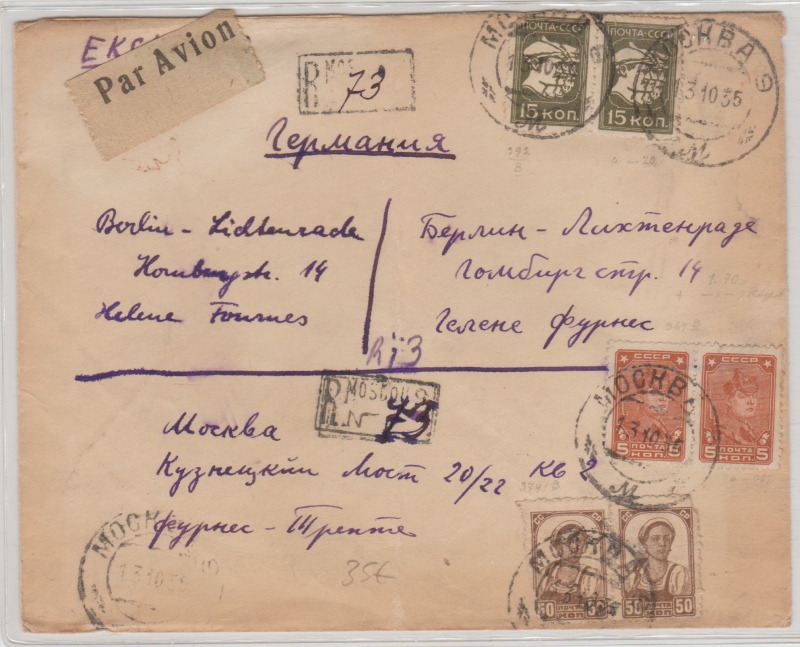 Par Avion
ПОЧТА СССР
15 КОП.
ПОЧТА СССР
15 КОП.
МОСКВА 9
13 10 35
R
73
Германия
Berlin - Lichtenrade
Homburgstr. 14
Helene Fournes
Берлин - Лихтенраде
Гомбург стр. 14
Гелене Фурнес
R 73
R MOSCOU 9
№ 73
Москва
Кузнецкий Мост 20/22 кв 2
Фурнес - Трепте
СССР
5 ПОЧТА КОП. 5
СССР
5 ПОЧТА КОП. 5
МОСКВА
13 10 35
50 ПОЧТА КОП. 50
50 ПОЧТА КОП. 50
МОСКВА
МОСКВА
13 10 35
35€